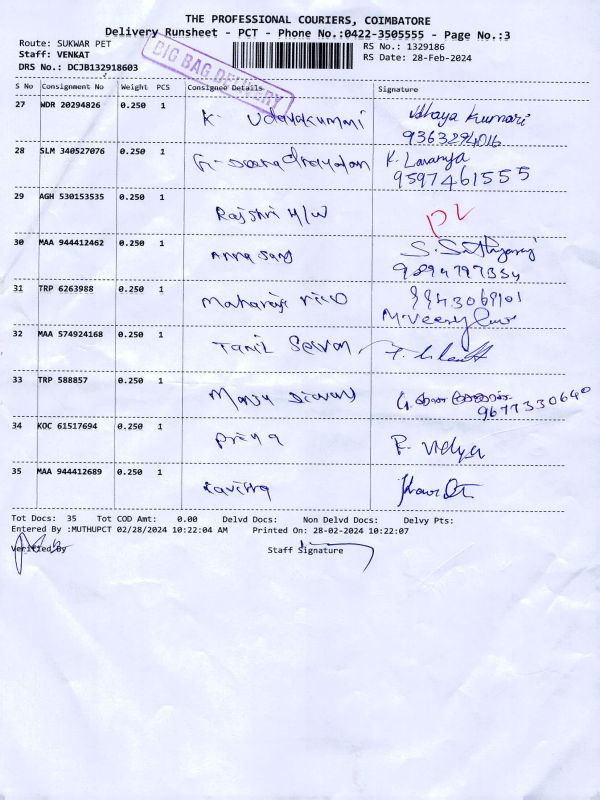 THE PROFESSIONAL COURIERS, COIMBATORE
Delivery Runsheet - PCT - Phone No.:0422-3505555 - Page No.:3
Route: SUKWAR PET RS No.: 1329186
Staff: VENKAT RS Date: 28-Feb-2024
DRS No.: DCJB132918603
BIG BAG DELIVERY
S No Consignment No Weight PCS Consignee Details Signature
27 WDR 20294826 0.250 1 K. Udayakumari Udhaya kumari
9363294016
28 SLM 340527076 0.250 1 K. Lavanya
9597461555
29 AGH 530153535 0.250 1 Rajshri H/W DL
30 MAA 944412462 0.250 1 Anna S. Sathyaraj
9894797354
31 TRP 6263988 0.250 1 Maharaja rice 9943069101
32 MAA 574924168 0.250 1 Tamil Selvan
33 TRP 588857 0.250 1 9677330640
34 KOC 61517694 0.250 1 Priya R. Vidya
35 MAA 944412689 0.250 1 Kavitha
Tot Docs: 35 Tot COD Amt: 0.00 Delvd Docs: Non Delvd Docs: Delvy Pts:
Entered By :MUTHUPCT 02/28/2024 10:22:04 AM Printed On: 28-02-2024 10:22:07
Verified By Staff Signature